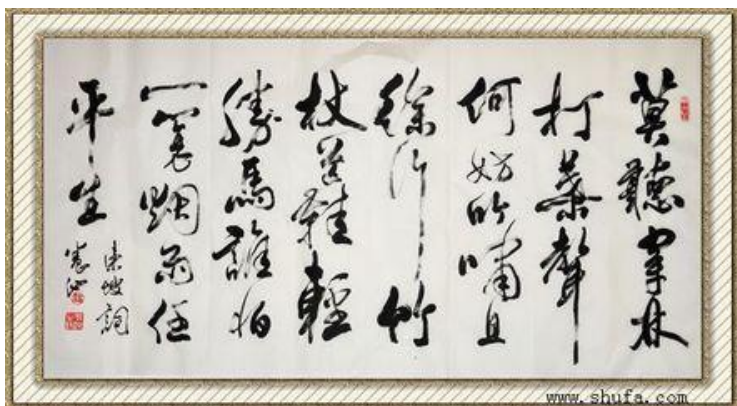 莫聽穿林
打葉聲
何妨吟嘯且
徐行竹
杖芒鞋輕
勝馬誰怕
一蓑烟雨任
平生
東坡詞
www.shufa.com